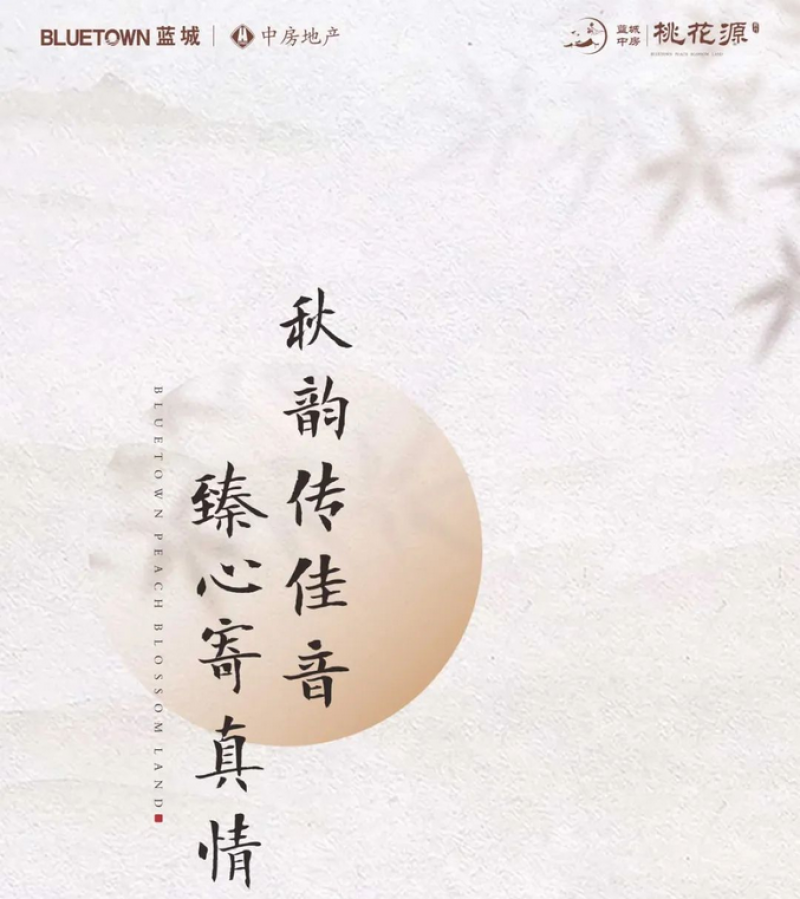 BLUETOWN 蓝城 | 中房地产
蓝城中房 | 桃花源
秋韵传佳音
臻心寄真情
BLUETOWN PEACH BLOSSOM LAND